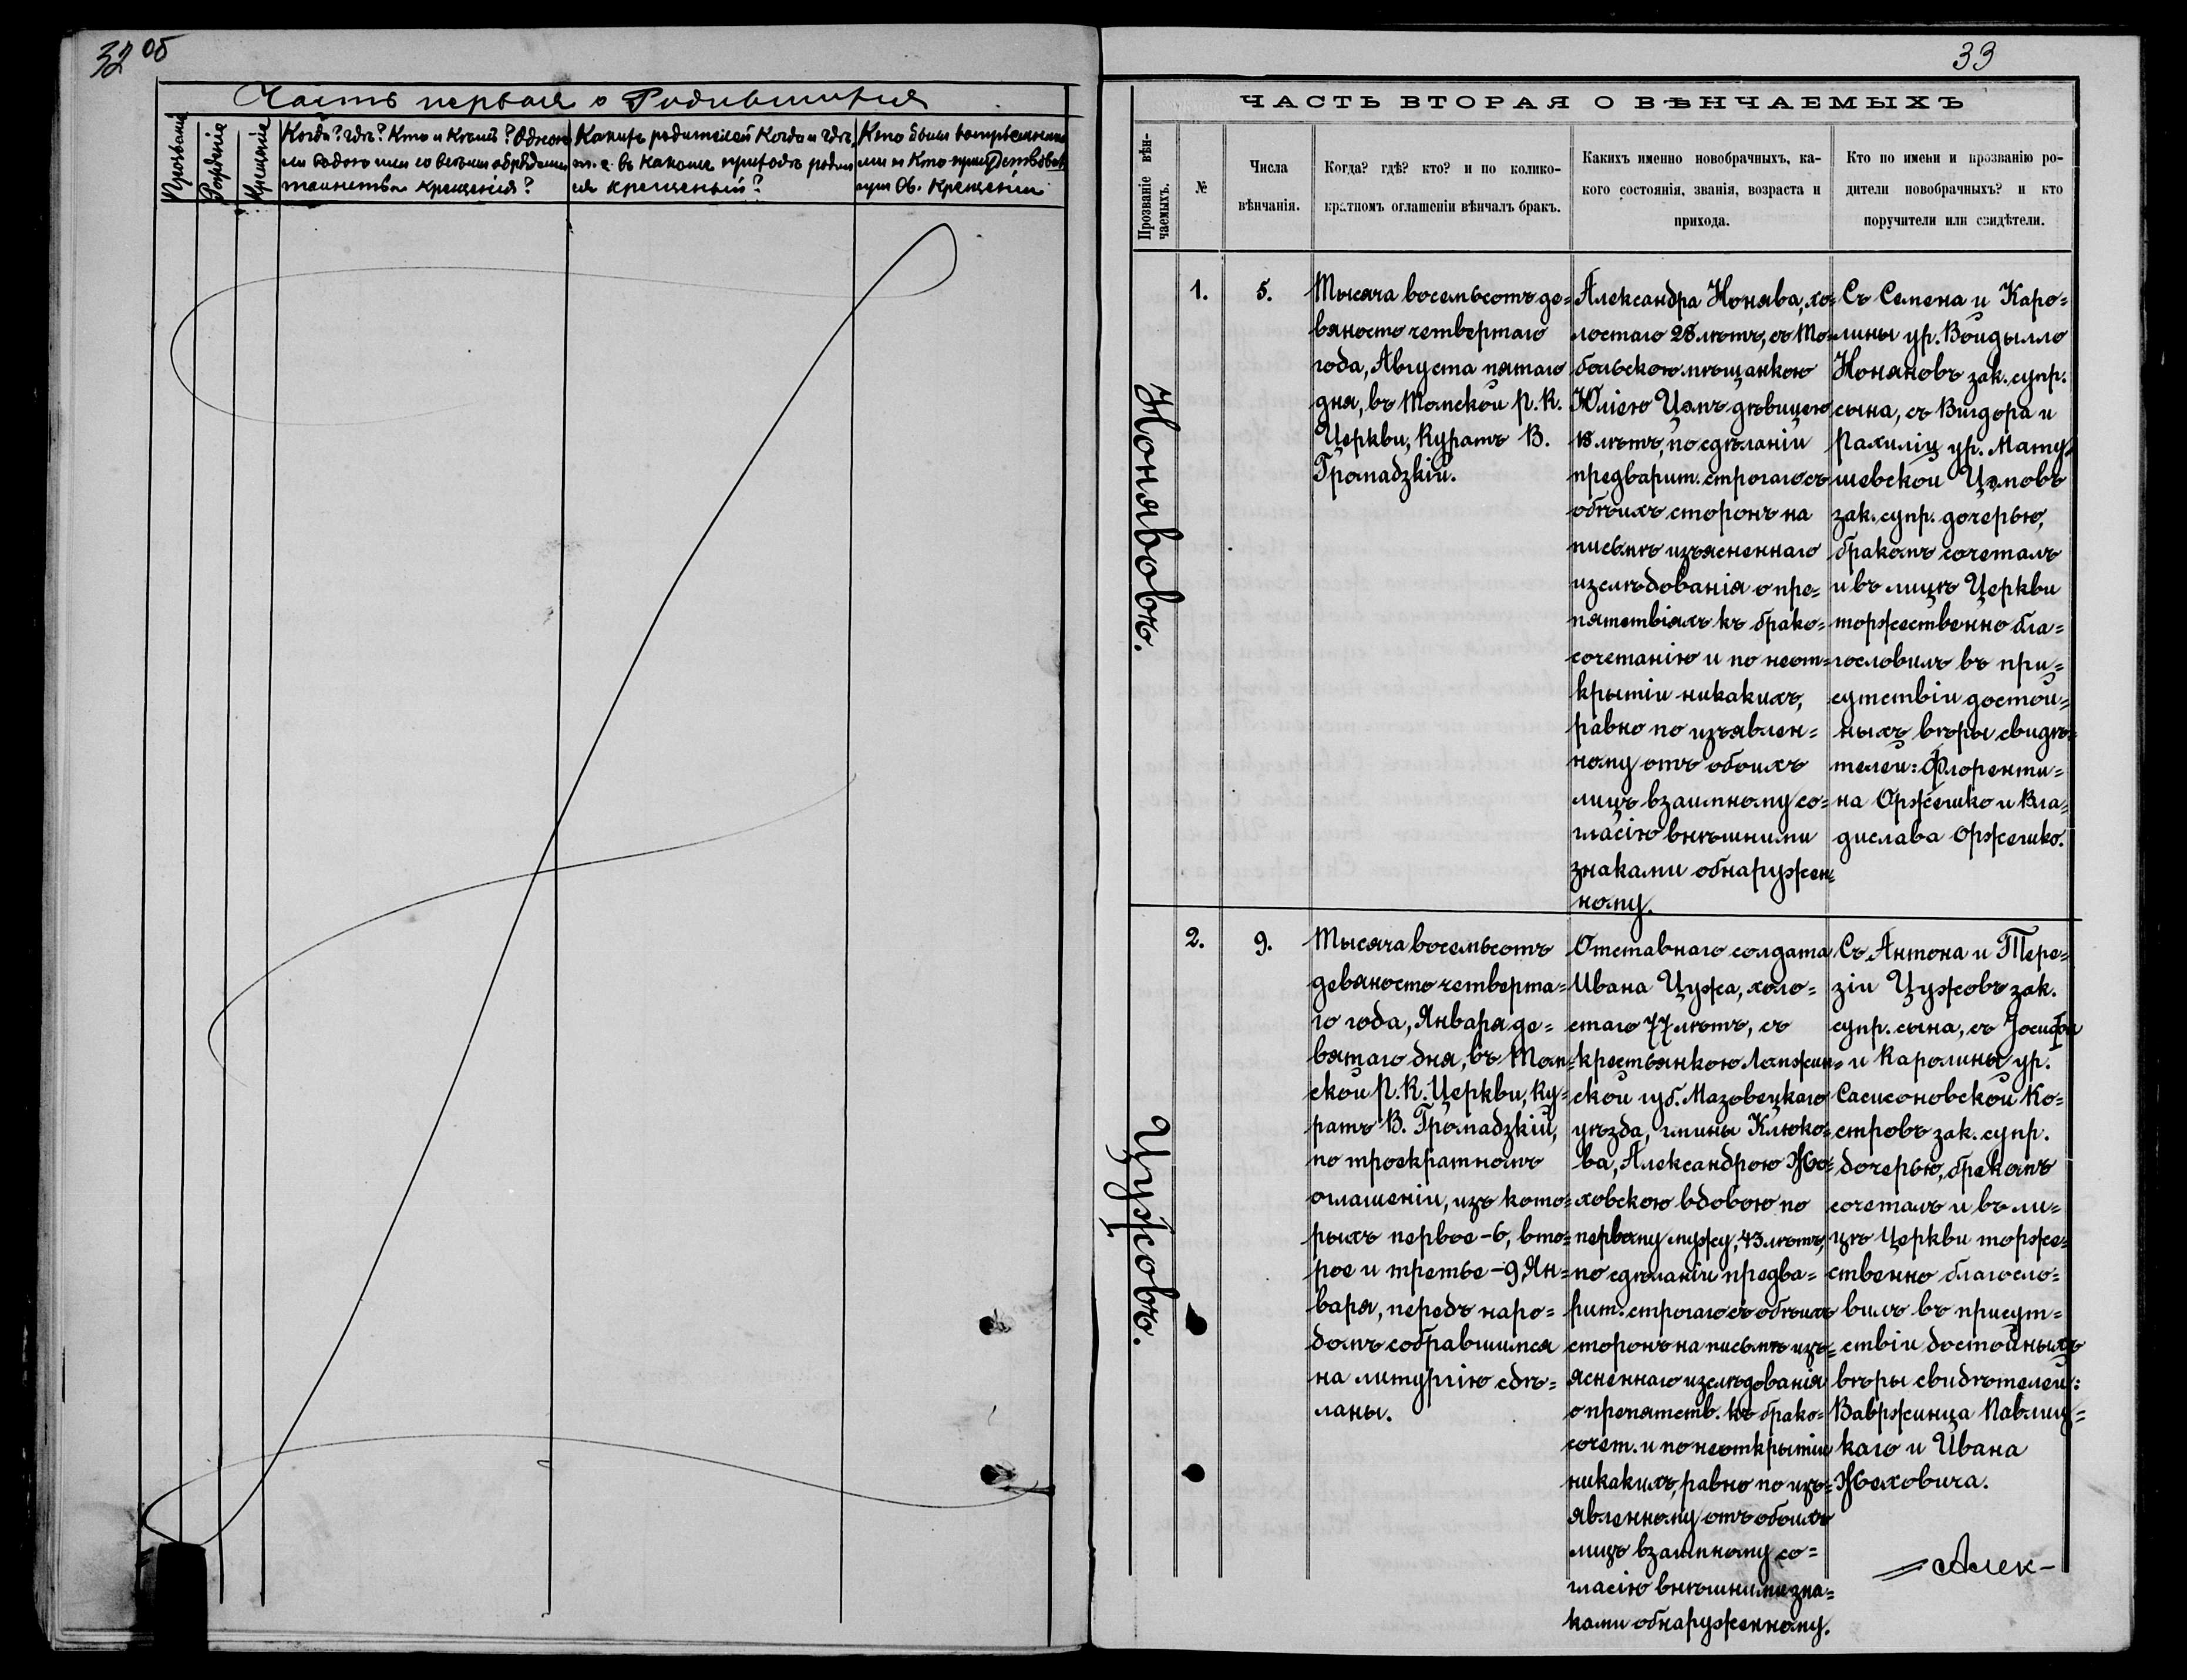 32 об
Часть первая о Родившихся
Прозвание
Рождение
Крещение
Когда? гдѣ? Кто и Кѣмъ? Одною
ли водою или со всѣми обрядами
таинства Крещенія?
Какихъ родителей Когда и гдѣ,
т. е. въ какомъ приходѣ родил
ся крещеный?
Кто были воспріемника
ми и Кто присутствовал
при Св. Крещеніи
33
ЧАСТЬ ВТОРАЯ О ВѢНЧАЕМЫХЪ
Прозваніе вѣн-
чаемыхъ.
№
Числа
вѣнчанія.
Когда? гдѣ? кто? и по колико-
кратномъ оглашеніи вѣнчалъ бракъ.
Какихъ именно новобрачныхъ, ка-
кого состоянія, званія, возраста и
прихода.
Кто по имени и прозванію ро-
дители новобрачныхъ? и кто
поручители или свидѣтели.
Нонявовъ.
1.
5.
Тысяча восемьсотъ де=
вяносто четвертаго
года, Августа пятаго
дня, въ Томской Р. К.
Церкви, Куратъ В.
Громадзкій.
Александра Нонява, хо=
лостаго 28 лѣтъ, съ То=
больскою мѣщанкою
Юліею Цэмъ дѣвицею
18 лѣтъ, по сдѣланіи
предварит. строгаго съ
обѣихъ сторонъ на
письмѣ изъясненнаго
изслѣдованія о пре=
пятствіяхъ къ брако=
сочетанію и по неот=
крытіи никакихъ,
равно по изъявлен=
ному отъ обоихъ
лицъ взаимному со=
гласію внѣшними
знаками обнаружен=
ному.
Съ Семена и Каро=
лины ур. Войдылло
Нонявовъ зак. супр.
сына, съ Вигдора и
Рахиліи ур. Мату=
шевской Цэмовъ
зак. супр. дочерью,
бракомъ сочеталъ
и въ лицѣ Церкви
торжественно бла=
гословилъ въ при=
сутствіи достой=
ныхъ вѣры свидѣ=
телей: Флоренти=
на Оржешко и Вла=
дислава Оржешко.
Цужовъ.
2.
9.
Тысяча восемьсотъ
девяносто четверта=
го года, Января де=
вятаго дня, въ Том=
ской Р. К. Церкви, Ку=
ратъ В. Громадзкій,
по троекратномъ
оглашеніи, изъ кото=
рыхъ первое – 6, вто=
рое и третье – 9, Ян=
варя, передъ наро=
домъ собравшимся
на литургію сдѣ=
ланы.
Отставнаго солдата
Ивана Цужа, холо=
стаго 77 лѣтъ, съ
крестьянкою Ломжин=
ской губ. Мазовецкаго
уѣзда, гмины Клюко=
ва, Александрою Жо=
ховскою вдовою по
первому мужу, 43 лѣтъ,
по сдѣланіи предва=
рит. строгаго съ обѣихъ
сторонъ на письмѣ изъ=
ясненнаго изслѣдованія
о препятств. къ брако=
сочет. и по неоткрытіи
никакихъ, равно по изъ=
явленному отъ обоихъ
лицъ взаимному со=
гласію внѣшними зна=
ками обнаруженному.
Съ Антона и Тере=
зіи Цужовъ зак.
супр. сына, съ Іосифа
и Каролины ур.
Сасисоновской Ко=
стровъ зак. супр.
дочерью, бракомъ
сочеталъ и въ ли=
цѣ Церкви торже=
ственно благосло=
вилъ въ присут=
ствіи достойныхъ
вѣры свидѣтелей:
Вавржинца Павлиц=
каго и Ивана
Жоховича.
Алек-